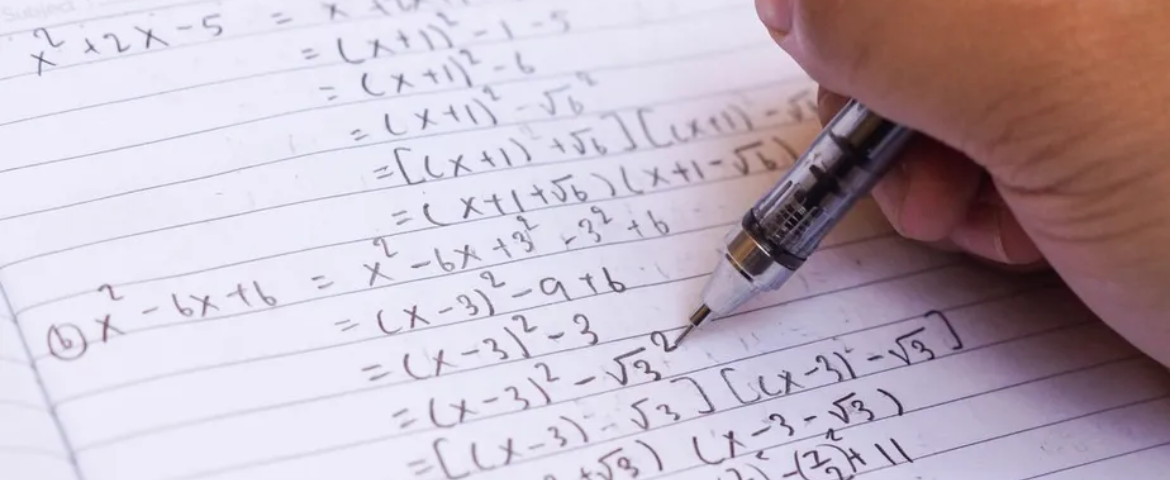 x² + 2x - 5 = x
= (x+1)² - 1 - 5
= (x+1)² - 6
= (x+1)² - √6²
= [(x+1) + √6] [(x+1) - √
= (x+1+√6) (x+1-√6)
(b) x² - 6x + 6 = x² - 6x + 3² - 3² + 6
= (x-3)² - 9 + 6
= (x-3)² - 3
= (x-3)² - √3²
= [(x-3) - √3] [(x-3) - √3]
+√3) (x-3-√3)
+ 11